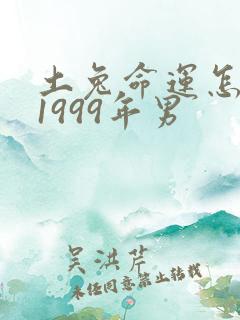 土兔命运怎
1999年男
吴洪芹
未经同意禁止转载